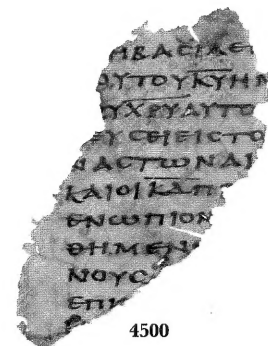 ΗΒΑϹΙΛΕΙ
ΟΥΤΟΥΚΥΗΜ
ΥΧΡΥΑΥΤΟ
ΕΥϹΕΙΕΙϹΤΟ
ΝΑϹΤΩΝΑΙ
ΚΑΙΟΙΚΔΠ
ΕΝΩΠΙΟΝ
ΘΗΜΕΝ
ΝΟΥϹ
ΕΠΙ
4500